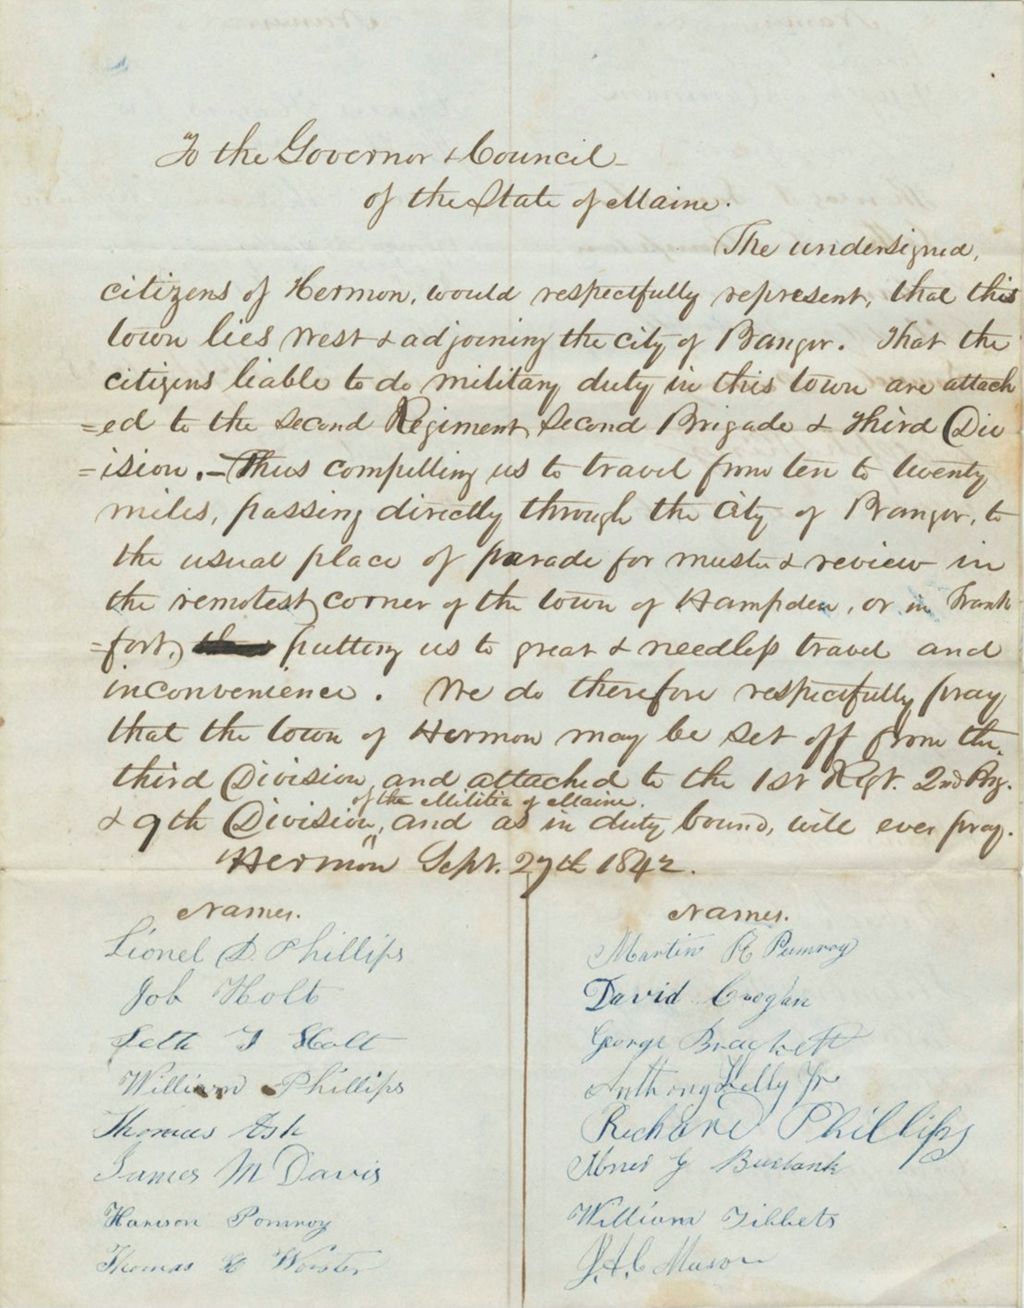 To the Governor & Council
of the State of Maine.
The undersigned,
citizens of Hermon, would respectfully represent, that this
town lies West & adjoining the city of Bangor. That the
citizens liable to do military duty in this town are attach
=ed to the Second Regiment, Second Brigade & third Div
=ision. - Thus compelling us to travel from ten to twenty
miles, passing directly through the City of Bangor, to
the usual place of parade for muster & review in
the remotest corner of the town of Hampden, or in Frank
=fort, putting us to great & needless travel and
inconvenience. We do therefore respectfully pray
that the town of Hermon may be set off from the
third Division and attached to the 1st Regt. 2nd Brig.
of the Militia of Maine.
& 9th Division, and as in duty bound, will ever pray.
Hermon Sept. 27th 1842.
Names. Names.
Lionel D. Phillips Martin R Pumroy
Job Holt David Googan
Seth Holt George Brackett
William Phillips Anthony Kelly Jr
Thomas Ash Richard Phillips
James M Davis Abner G Burbank
Harison Pomroy William Tibbets
Thomas Worster J. H. C Mason